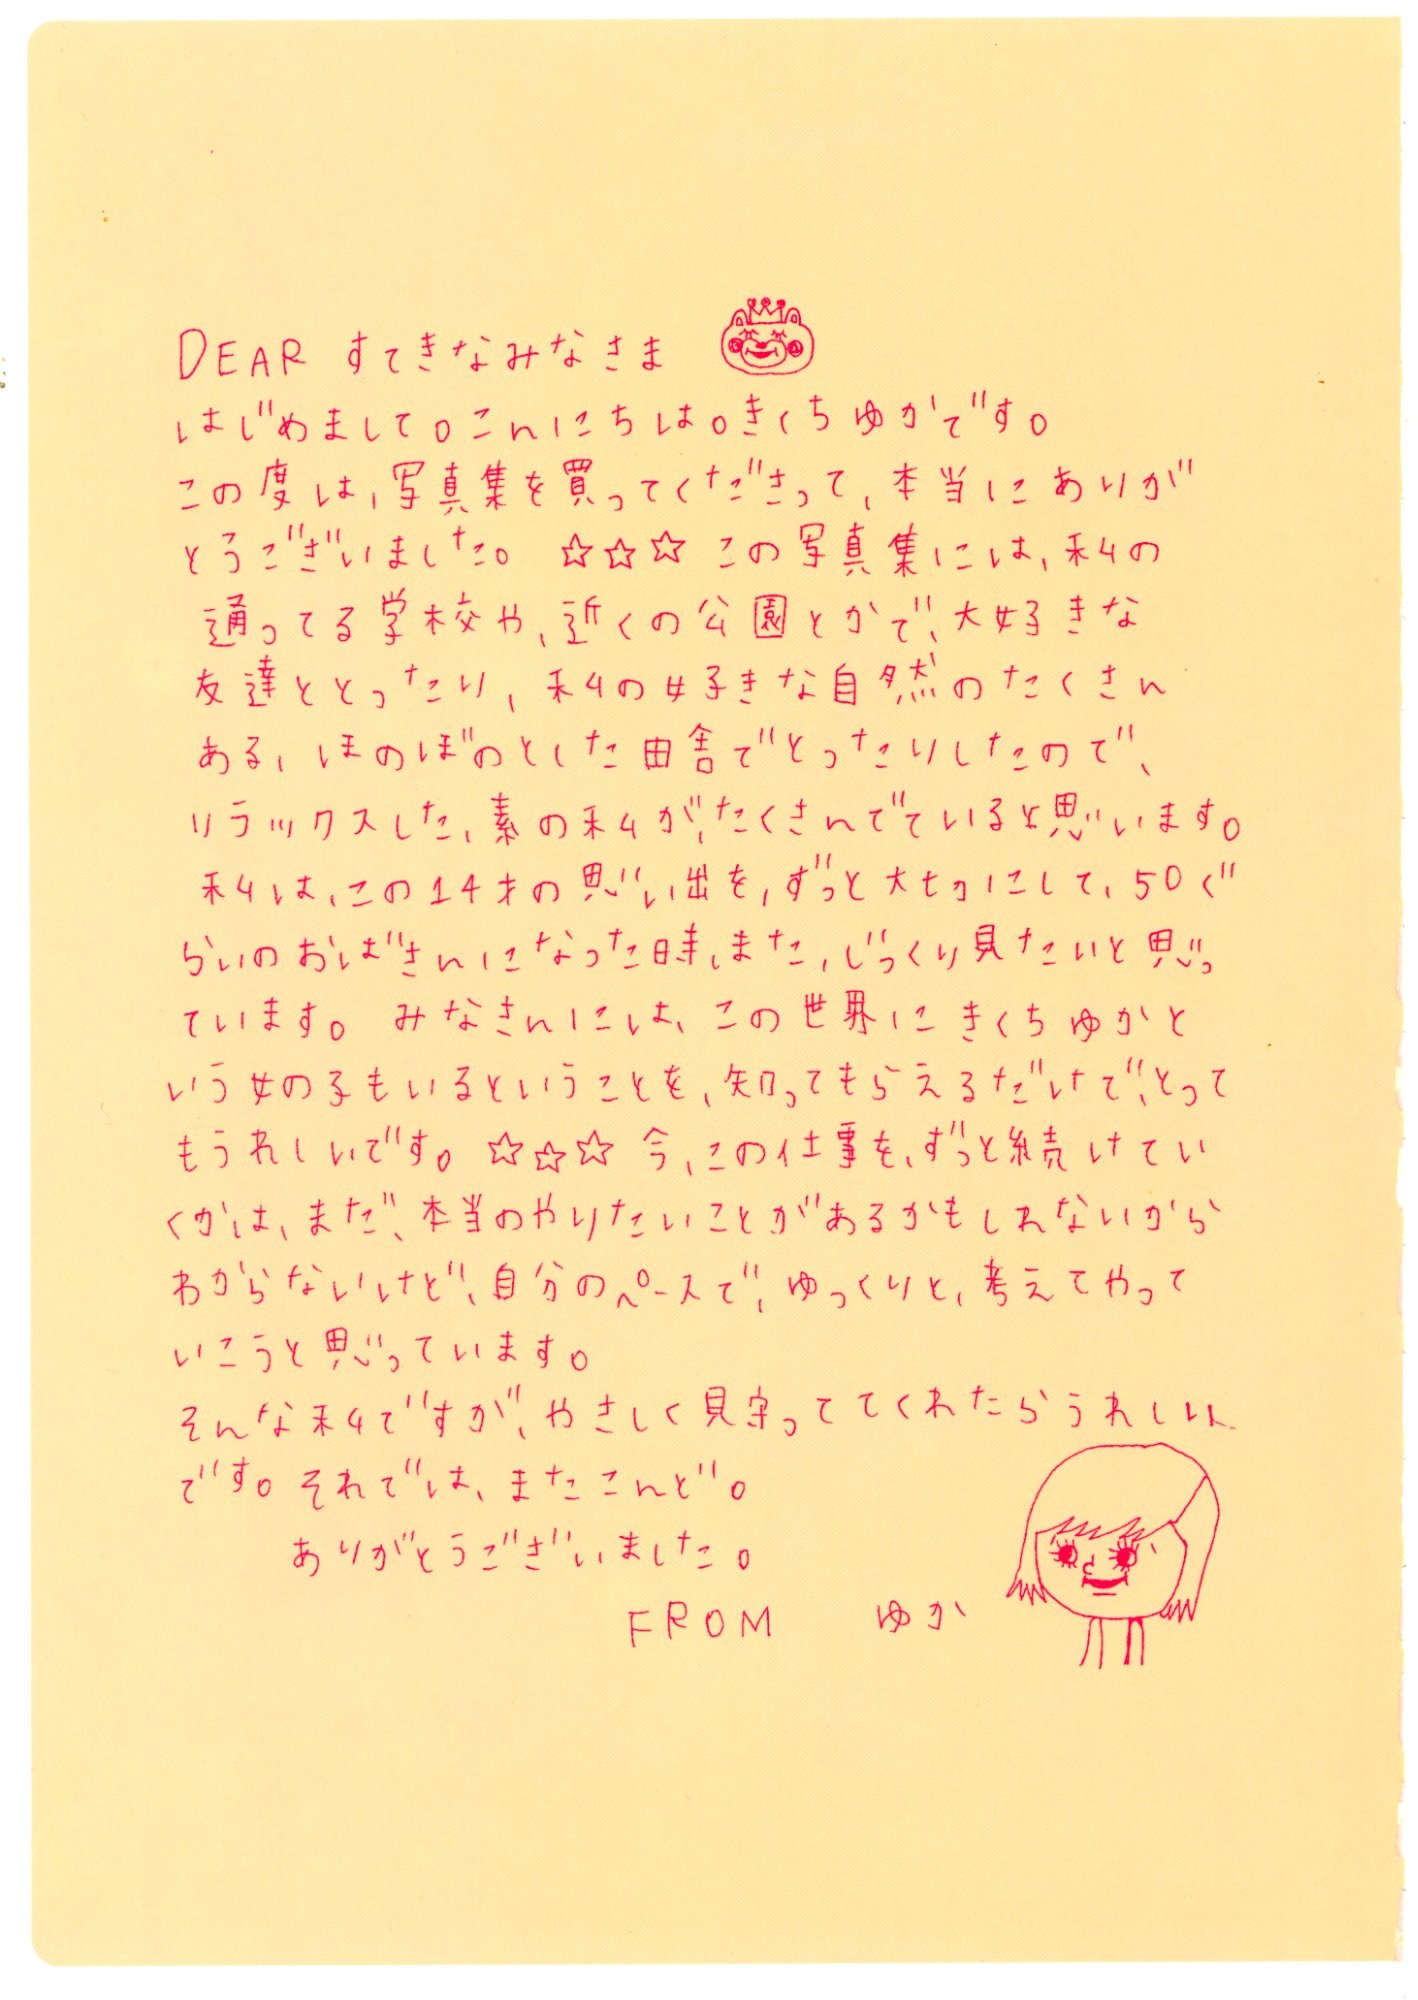 DEAR すてきなみなさま
はじめまして。こんにちは。きくちゆかです。
この度は、写真集を買ってくださって、本当にありが
とうございました。 ☆☆☆ この写真集には、私の
通ってる学校や、近くの公園とかで、大好きな
友達ととったり、私の好きな自然のたくさん
ある、ほのぼのとした田舎でとったりしたので、
リラックスした、素の私が、たくさんでていると思います。
私は、この14才の思い出を、ずっと大切にして、50ぐ
らいのおばさんになった時、また、じっくり見たいと思っ
ています。 みなさんには、この世界にきくちゆかと
いう女の子もいるということを、知ってもらえるだけで、とって
もうれしいです。☆☆☆ 今、この仕事を、ずっと続けてい
くかは、まだ、本当のやりたいことがあるかもしれないから
わからないけど、自分のペースで、ゆっくりと、考えてやって
いこうと思っています。
そんな私ですが、やさしく見守っててくれたらうれしい
です。それでは、またこんど。
ありがとうございました。
FROM ゆか